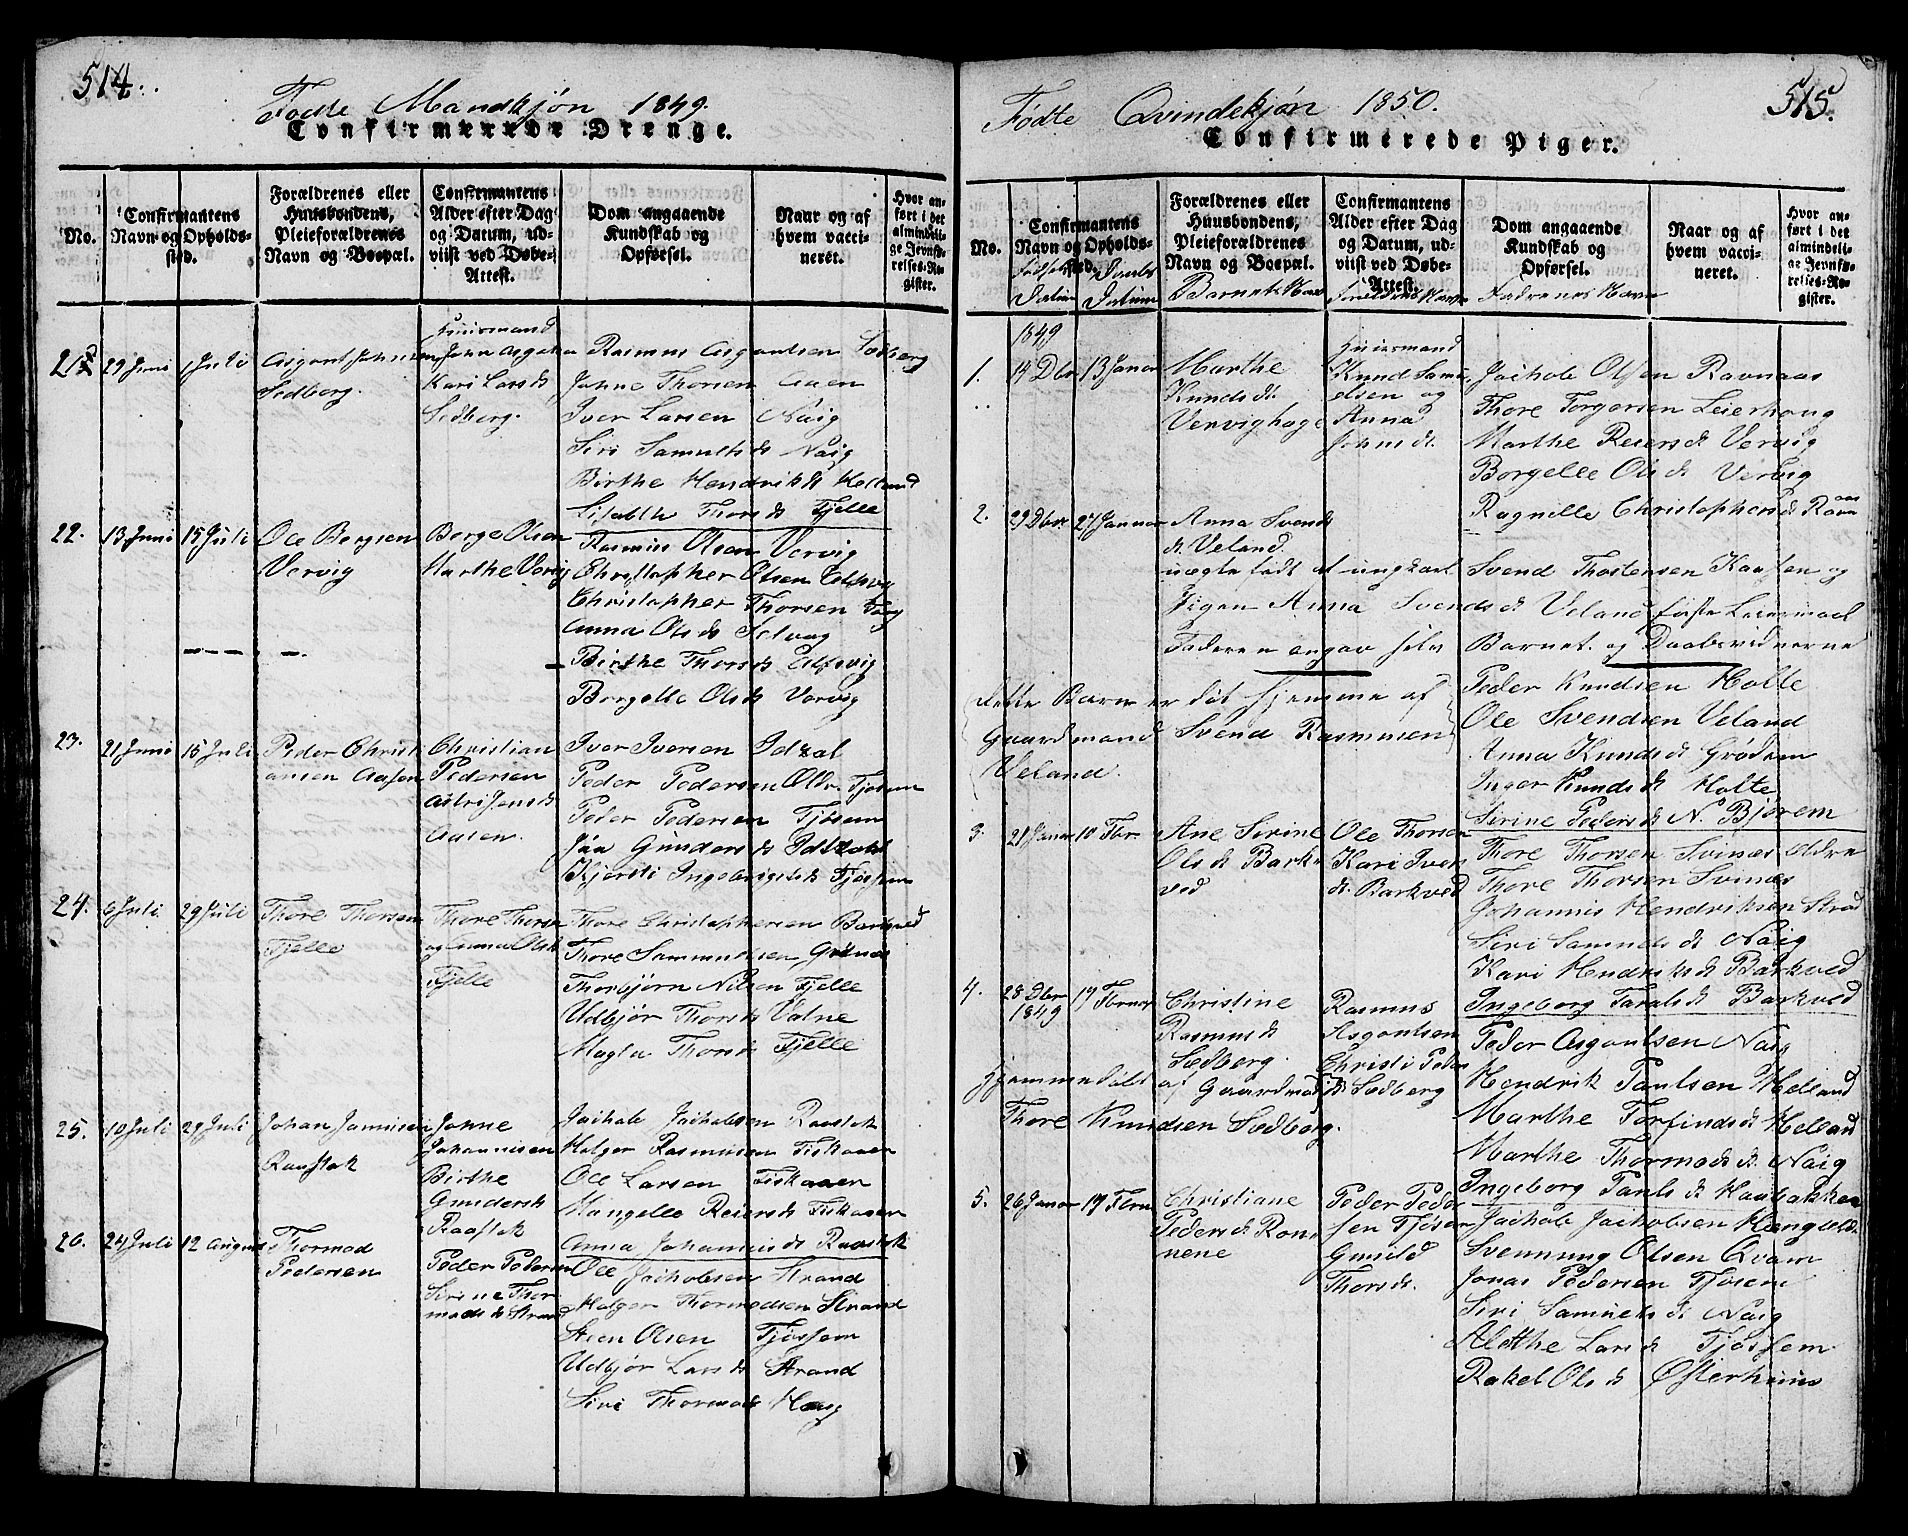 514.
Fødte Mandkjøn 1849.
Confirmerede Drenge.
No.
Confirmantens Navn og Opholdssted.
Forældrenes eller Huusbondens, Pleieforældrenes Navn og Boepæl.
Confirmantens Alder efter Dag og Datum, udviist ved Døbe-Attest.
Dom angaaende Kundskab og Opførsel.
Naar og af hvem vaccineret.
Hvor anført i det almindelige Jevnførelses-Register.
21 29 Juni 1 Juli Asgout Johnsen
Sedberg.
Huusmand
John Asgoutsen
Kari Larsd.
Sedberg.
Rasmus Asgoutsen Sedberg
Johne Thorsen Aaen
Iver Larsen Naig
Siri Samuelsd. Naig
Birthe Hendriksd. Helland
Lisabeth Thorsd. Fjelle
22. 13 Juni 15 Juli Ole Borgsen
Vervig
Borge Olsen
Marthe Vervig
Rasmus Olsen Vervig
Christopher Olsen Elfsvig
Christopher Thorsen
Anna Olsd. Selvag
Birthe Thorsd. Elfsvig
Borgelle Olsd. Vervig
23. 21 Juni 15 Juli Peder Christiansen Aasen
Christian
Pedersen
Astri Jensd.
Aasen.
Iver Iversen Idzal
Peder Pedersen Oldr. Tjøsem
Peder Pedersen Tjøsem
Gundersd. Idzal
Kjersti Ingebrigtsd. Tjøssem
24. 6 Juli 29 Juli Thore Thorsen
Fjelle
Thore Thorsen
og Anna Olsd.
Fjelle
Thore Christophersen Barkved
Thore Sammuelsen Grønes
Thorbjørn Nilsen Fjelle
Udbjør Thorsd. Valne
Magla Thorsd. Fjelle
25. 10 Juli 29 Juli Johan Jannisen
Raustak
Johne
Johannisen
Birthe
Gundersd.
Raastak
Jachob Jachobsen Raastak
Holger Rasmusen Fiskaaen
Ole Larsen Fiskaaen
Mangelle Reiersd. Fiskaaen
Anna Johannisd. Raastak
26. 24 Juli 12 August Thormod
Pedersen
Peder Pedersen
Sirine Thormodsd. Strand
Ole Jachobsen Strand
Holger Thormodsen Strand
Steen Olsen Tjøssem
Udbjør Larsd. Strand
Siri Thormodsd. Haug
515.
Fødte Qvindekjøn 1850.
Confirmerede Piger.
No.
Confirmantens Navn og Opholdssted.
Fødsels Datum
Daabs Datum
Forældrenes eller Huusbondens, Pleieforældrenes Navn og Boepæl.
Barnets Navn
Confirmantens Alder efter Dag og Datum, udviist ved Døbe-Attest.
Forældrenes Navn
Dom angaaende Kundskab og Opførsel.
Fadrenes Navn
Naar og af hvem vaccineret.
Hvor anført i det almindelige Jevnførelses-Register.
1849
1. 14 Dbr 13 Januar Marthe
Knudsd.
Vervighage
Huusmand
Knud Samuelsen og
Anna
Johnsd.
Jachob Olsen Ravnaas
Thore Torgersen Leierhoug
Marthe Reiersd. Vervig
Borgelle Olsd. Vervig
Ragnille Christophersd. Ravnaas
2. 29 Dbr 27 Januar Anna Svendsd. Veland
uægte født af ungkarl Svend Thostensen Kaasen og
Pigen Anna Svendsd. Veland første Leiermaal
Faderen angav selv Barnet og Daabsvidnerne
Dette Barn er døbt hjemme af
Gaardmand Svend Rasmusen
Veland.
Peder Knudsen Holte
Ole Svendsen Veland
Anna Knudsd. Grødem
Inger Knudsd. Holte
Serine Pedersd. N. Bjorem
3. 21 Januar 10 Fbr. Ane Serine
Olsd. Barkved
Ole Thorsen
Kari Iversd. Barkved
Thore Thorsen Svinæs Aldre
Thore Thorsen Svinæs
Johannis Hendriksen Strød
Siri Samuelsd. Naig
Kari Hendriksd. Barkved
Ingeborg Taralsd. Barkved
4. 28 Dbr 1849 17 Fbruar Christine
Rasmusd.
Sedberg
Rasmus
Asgoutsen
Christi Pedersd. Sedberg
hjemmedøbt af Gaardmand
Thore Knudsen Sedberg.
Peder Asgoutsen Naig
Hendrik Paulsen Helland
Marthe Torfindsd. Helland
Marthe Thormodsd. Naig
Ingeborg Paulsd. Haabakken
5. 26 Januar 17 Fbru Christiane
Pedersd. Ronnene
Peder Pedersen Tjøsem
Gunild
Thorsd.
Jachob Jachobsen
Svennung Olsen Qvam
Jonas Pedersen Tjøsem
Siri Samuelsd. Naig
Alethe Larsd. Tjøssem
Rakel Olsd. Østerhuus